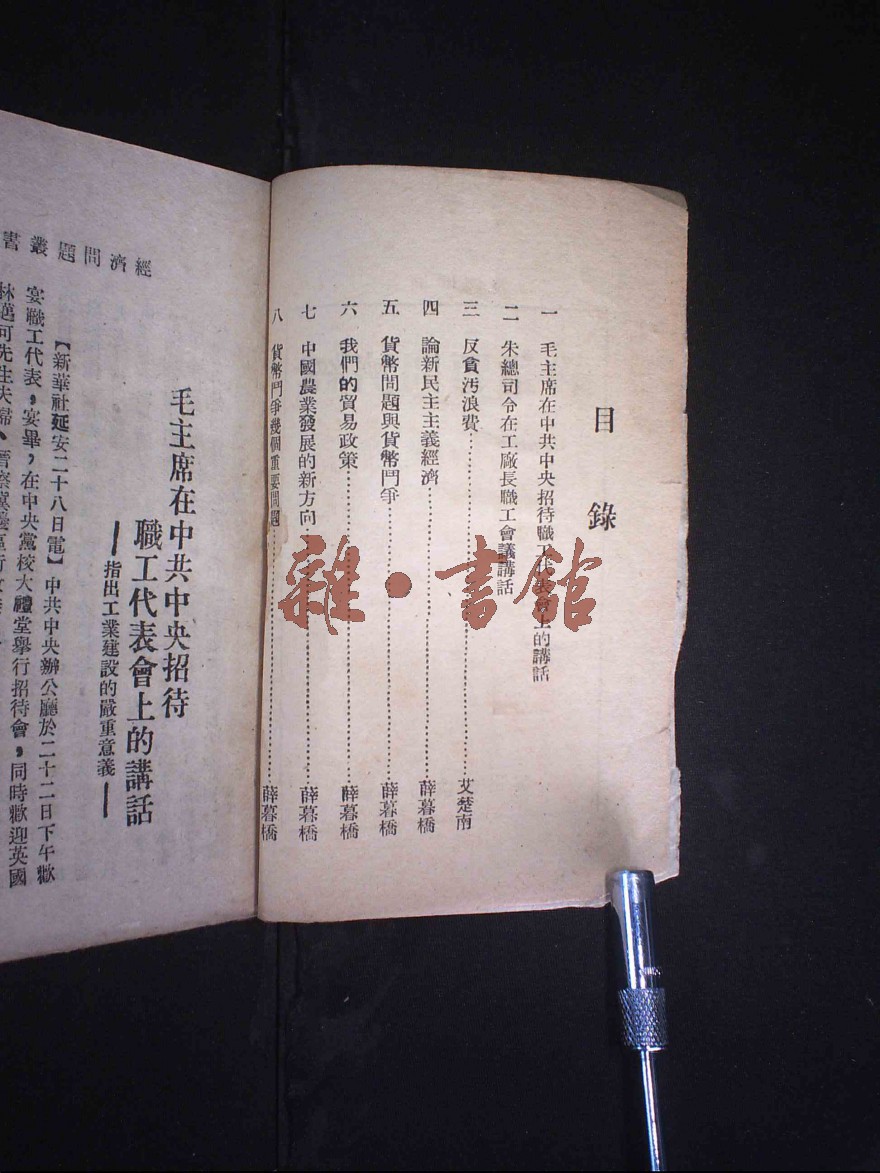 目錄
一 毛主席在中共中央招待職工代表會上的講話
二 朱總司令在工廠長職工會議講話
三 反貪汚浪費……艾楚南
四 論新民主主義經濟……薛暮橋
五 貨幣問題與貨幣鬥爭……薛暮橋
六 我們的貿易政策……薛暮橋
七 中國農業發展的新方向……薛暮橋
八 貨幣鬥爭幾個重要問題……薛暮橋
雜·書館
經濟問題叢書
毛主席在中共中央招待
職工代表會上的講話
——指出工業建設的嚴重意義——
【新華社延安二十八日電】中共中央辦公廳於二十二日下午歡
宴職工代表,宴畢,在中央黨校大禮堂舉行招待會,同時歡迎英國
林邁可先生夫婦、晉察冀邊區行